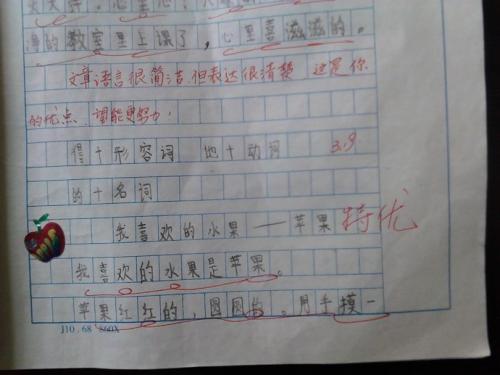 净的教室里上课了，心里喜滋滋的。
文章语言很简洁，但表达很清楚，这是你
的优点，望能更努力！
得+形容词 地+动词 3.9
的+名词
我喜欢的水果——苹果 特优
我喜欢的水果是苹果。
苹果红红的，圆圆的，用手摸一
J10.68